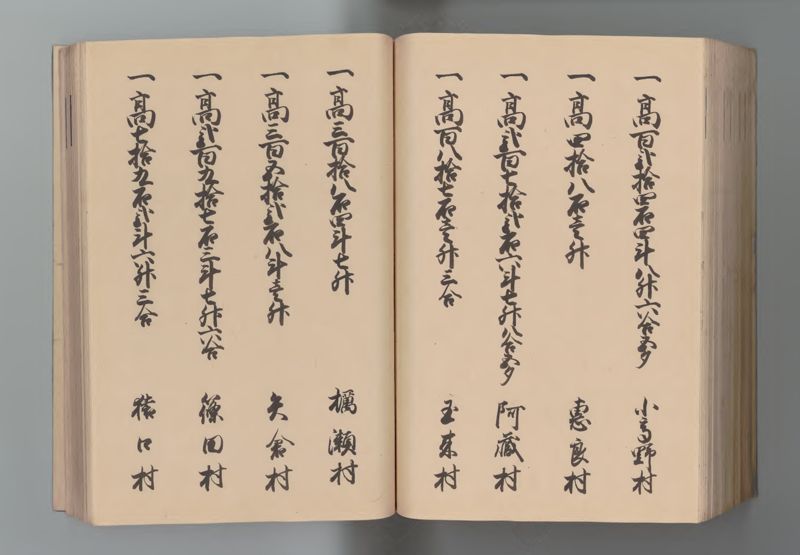 一高百弐拾四石四斗八升六合五夕 小高野村
一高四拾八石壱升 恵良村
一高弐百七拾弐石六斗七升八合五夕 阿蔵村
一高百八拾七石壱升三合 玉来村
一高三百拾八石四斗七升 梶瀬村
一高三百五拾弐石八斗壱升 矢倉村
一高弐百五拾七石三斗七升六合 篠田村
一高七拾五石弐斗六升三合 猿口村